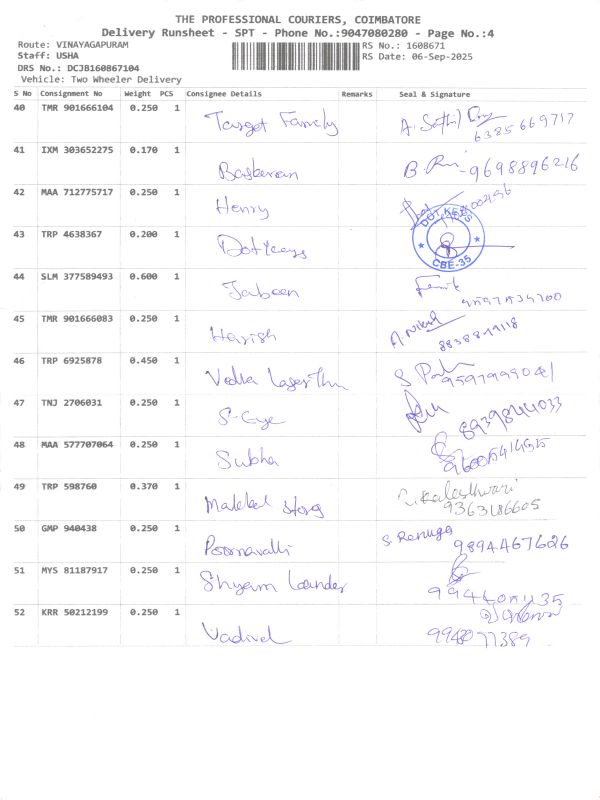 THE PROFESSIONAL COURIERS, COIMBATORE
Delivery Runsheet - SPT - Phone No.:9047080280 - Page No.:4
Route: VINAYAGAPURAM RS No.: 1608671
Staff: USHA RS Date: 06-Sep-2025
DRS No.: DCJB160867104
Vehicle: Two Wheeler Delivery
S No Consignment No Weight PCS Consignee Details Remarks Seal & Signature
40 TMR 901666104 0.250 1 Target Family 6385669717
41 IXM 303652275 0.170 1 Baskaran 9698896216
42 MAA 712775717 0.250 1 Henry
43 TRP 4638367 0.200 1 Dotkeys DOT KEYS CBE-35
44 SLM 377589493 0.600 1 Jabeen
45 TMR 901666083 0.250 1 Harish
46 TRP 6925878 0.450 1 9597999041
47 TNJ 2706031 0.250 1 S-Eye 8939844033
48 MAA 577707064 0.250 1 Subha
49 TRP 598760 0.370 1 9363186605
50 GMP 940438 0.250 1 Poornavalli S Renuga 98944 67626
51 MYS 81187917 0.250 1 Shyam
52 KRR 50212199 0.250 1 Vadivel